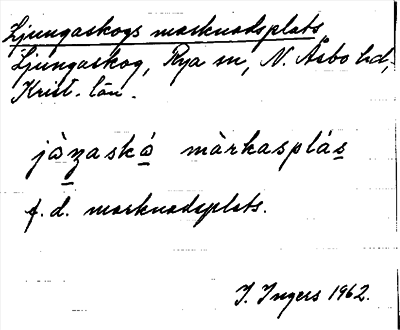 Ljungaskogs marknadsplats
Ljungaskog, Rya sn, N. Åsbo hd,
Krist. län.
jò̱zaskó̱ màrkasplás̱
f. d. marknadsplats.
I. Ingers 1962.